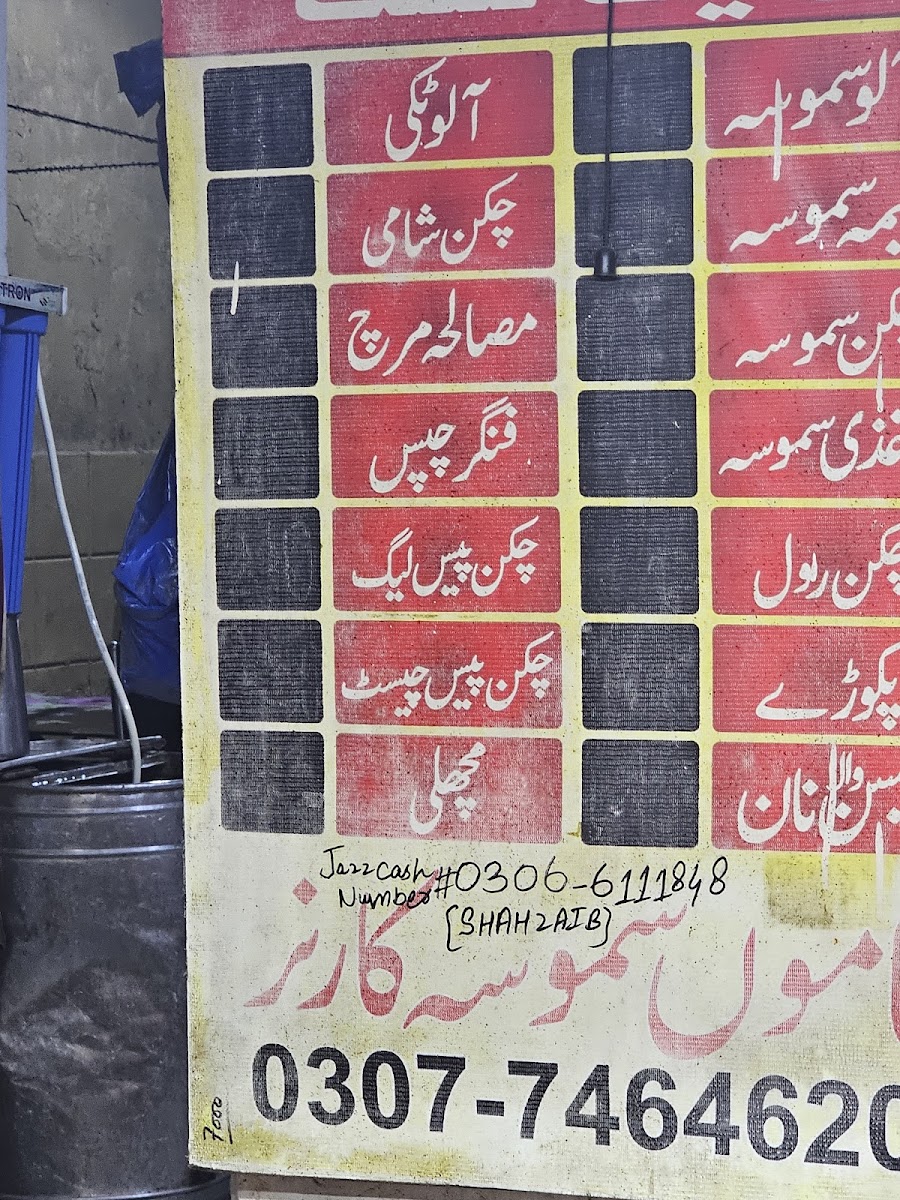 TRON
لو سموسہ
آلو ٹکی
یمہ سموسہ
چکن شامی
کن سموسہ
مصالحہ مرچ
غذی سموسہ
فنگر چپس
چکن رول
چکن پیس لیگ
پکوڑے
چکن پیس چیسٹ
یسن والا نان
مچھلی
Jazzcash Number #0306-6111848
[SHAHZAIB]
اموں سموسہ کارنر
0307-7464620
7000